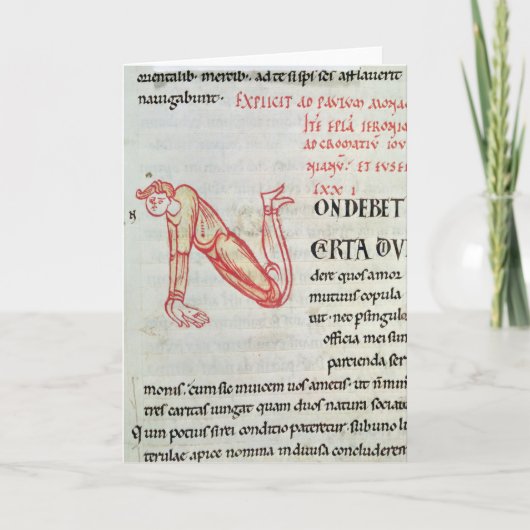 orientalib. mercib. ad te si sp̅s ses afflauerit
nauigabunt.
EXPLICIT AD PAULUM MONAC
ITE EPLA IERONIO
AD CROMATIUM IOU
NIANU. ET EUSEB
LXX I
N
ON DEBET
CARTA DIUI
dere quos amor
mutuus copula
uit. nec p singulo
officia mei sun
partienda ser
monis. cum sic inuicem uos ametis. ut n̅ min
tres caritas iungat quam duos natura sociate
Quin potius si rei conditio pateretur. sub uno li
terulae apice nomina indiuisa concluderem